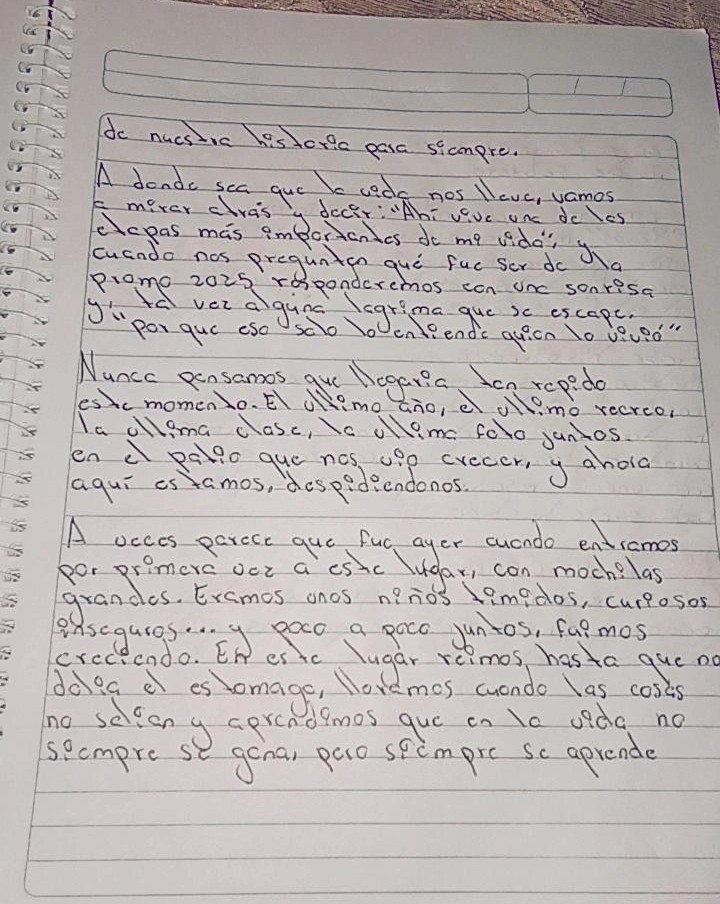 de nuestra historia para siempre.
A donde sea que la vida nos lleve, vamos
a mirar atrás y decir: "Ahi vive una de las
etapas más importantes de mi vida", y
cuando nos pregunten qué fue ser de la
promo 2025 responderemos con una sonrisa
y, tal vez alguna lagrima que se escape.
"por que eso solo lo entiende quien lo vivió"
Nunca pensamos que llegaria tan rapido
este momento. El ultimo año, el ultimo recreo,
la ultima clase, la ultima foto juntos.
en el patio que nos vio crecer, y ahora
aquí estamos, despidiendonos.
A veces parece que fue ayer cuando entramos
por primera vez a este lugar, con mochilas
grandes. Eramos unos niños timidos, curiosos
inseguros... y poco a poco juntos, fuimos
creciendo. En este lugar reimos, hasta que no
dolia el estomago, lloramos cuando las cosas
no salian y aprendimos que en la vida no
siempre se gana, pero siempre se aprende